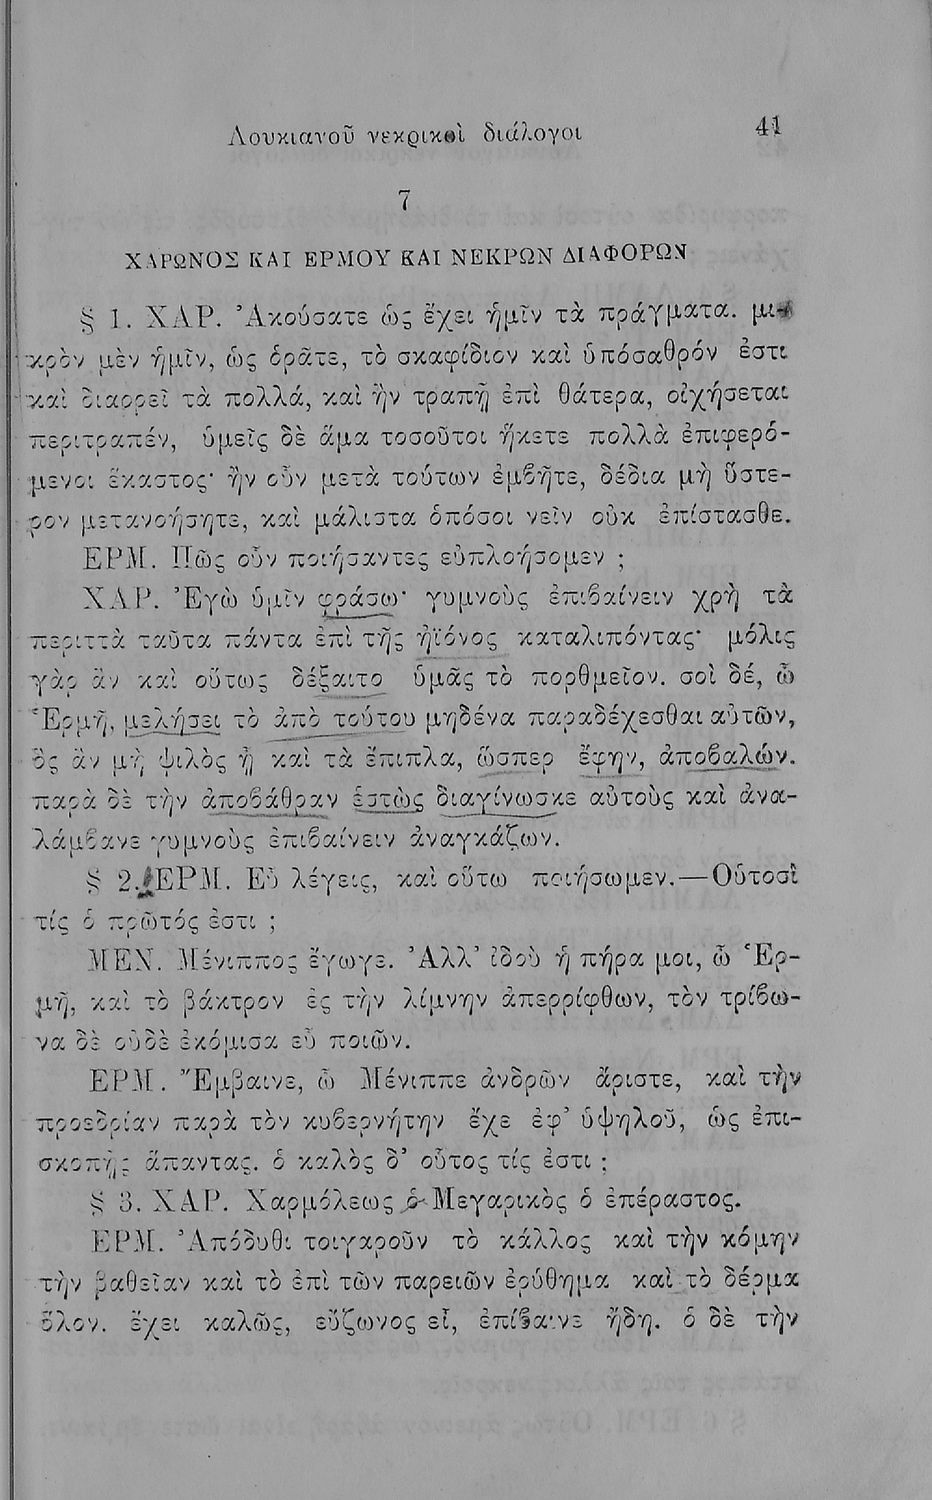 Λουκιανοῦ νεκρικοὶ διάλογοι 41
7
ΧΑΡΩΝΟΣ ΚΑΙ ΕΡΜΟΥ ΚΑΙ ΝΕΚΡΩΝ ΔΙΑΦΟΡΩΝ
§ 1. ΧΑΡ. Ἀκούσατε ὡς ἔχει ἡμῖν τὰ πράγματα. μι-
κρὸν μὲν ἡμῖν, ὡς ὁρᾶτε, τὸ σκαφίδιον καὶ ὑπόσαθρόν ἐστι
καὶ διαρρεῖ τὰ πολλά, καὶ ἢν τραπῇ ἐπὶ θάτερα, οἰχήσεται
περιτραπέν, ὑμεῖς δὲ ἅμα τοσοῦτοι ἥκετε πολλὰ ἐπιφερό-
μενοι ἕκαστος· ἢν οὖν μετὰ τούτων ἐμβῆτε, δέδια μὴ ὕστε-
ρον μετανοήσητε, καὶ μάλιστα ὁπόσοι νεῖν οὐκ ἐπίστασθε.
ΕΡΜ. Πῶς οὖν ποιήσαντες εὐπλοήσομεν ;
ΧΑΡ. Ἐγὼ ὑμῖν φράσω· γυμνοὺς ἐπιβαίνειν χρὴ τὰ
περιττὰ ταῦτα πάντα ἐπὶ τῆς ἠϊόνος καταλιπόντας· μόλις
γὰρ ἂν καὶ οὕτως δέξαιτο ὑμᾶς τὸ πορθμεῖον. σοὶ δέ, ὦ
Ἑρμῆ, μελήσει τὸ ἀπὸ τούτου μηδένα παραδέχεσθαι αὐτῶν,
ὃς ἂν μὴ ψιλὸς ᾖ καὶ τὰ ἔπιπλα, ὥσπερ ἔφην, ἀποβαλών.
παρὰ δὲ τὴν ἀποβάθραν ἑστὼς διαγίνωσκε αὐτοὺς καὶ ἀνα-
λάμβανε γυμνοὺς ἐπιβαίνειν ἀναγκάζων.
§ 2. ΕΡΜ. Εὖ λέγεις, καὶ οὕτω ποιήσωμεν.—Οὑτοσὶ
τίς ὁ πρῶτός ἐστι ;
ΜΕΝ. Μένιππος ἔγωγε. Ἀλλ' ἰδοὺ ἡ πήρα μοι, ὦ Ἑρ-
μῆ, καὶ τὸ βάκτρον ἐς τὴν λίμνην ἀπερρίφθων, τὸν τρίβω-
να δὲ οὐδὲ ἐκόμισα εὖ ποιῶν.
ΕΡΜ. Ἔμβαινε, ὦ Μένιππε ἀνδρῶν ἄριστε, καὶ τὴν
προεδρίαν παρὰ τὸν κυβερνήτην ἔχε ἐφ' ὑψηλοῦ, ὡς ἐπι-
σκοπῇς ἅπαντας. ὁ καλὸς δ' οὗτος τίς ἐστι ;
§ 3. ΧΑΡ. Χαρμόλεως ὁ Μεγαρικὸς ὁ ἐπέραστος.
ΕΡΜ. Ἀπόδυθι τοιγαροῦν τὸ κάλλος καὶ τὴν κόμην
τὴν βαθεῖαν καὶ τὸ ἐπὶ τῶν παρειῶν ἐρύθημα καὶ τὸ δέρμα
ὅλον. ἔχει καλῶς, εὔζωνος εἶ, ἐπίβαινε ἤδη. ὁ δὲ τὴν